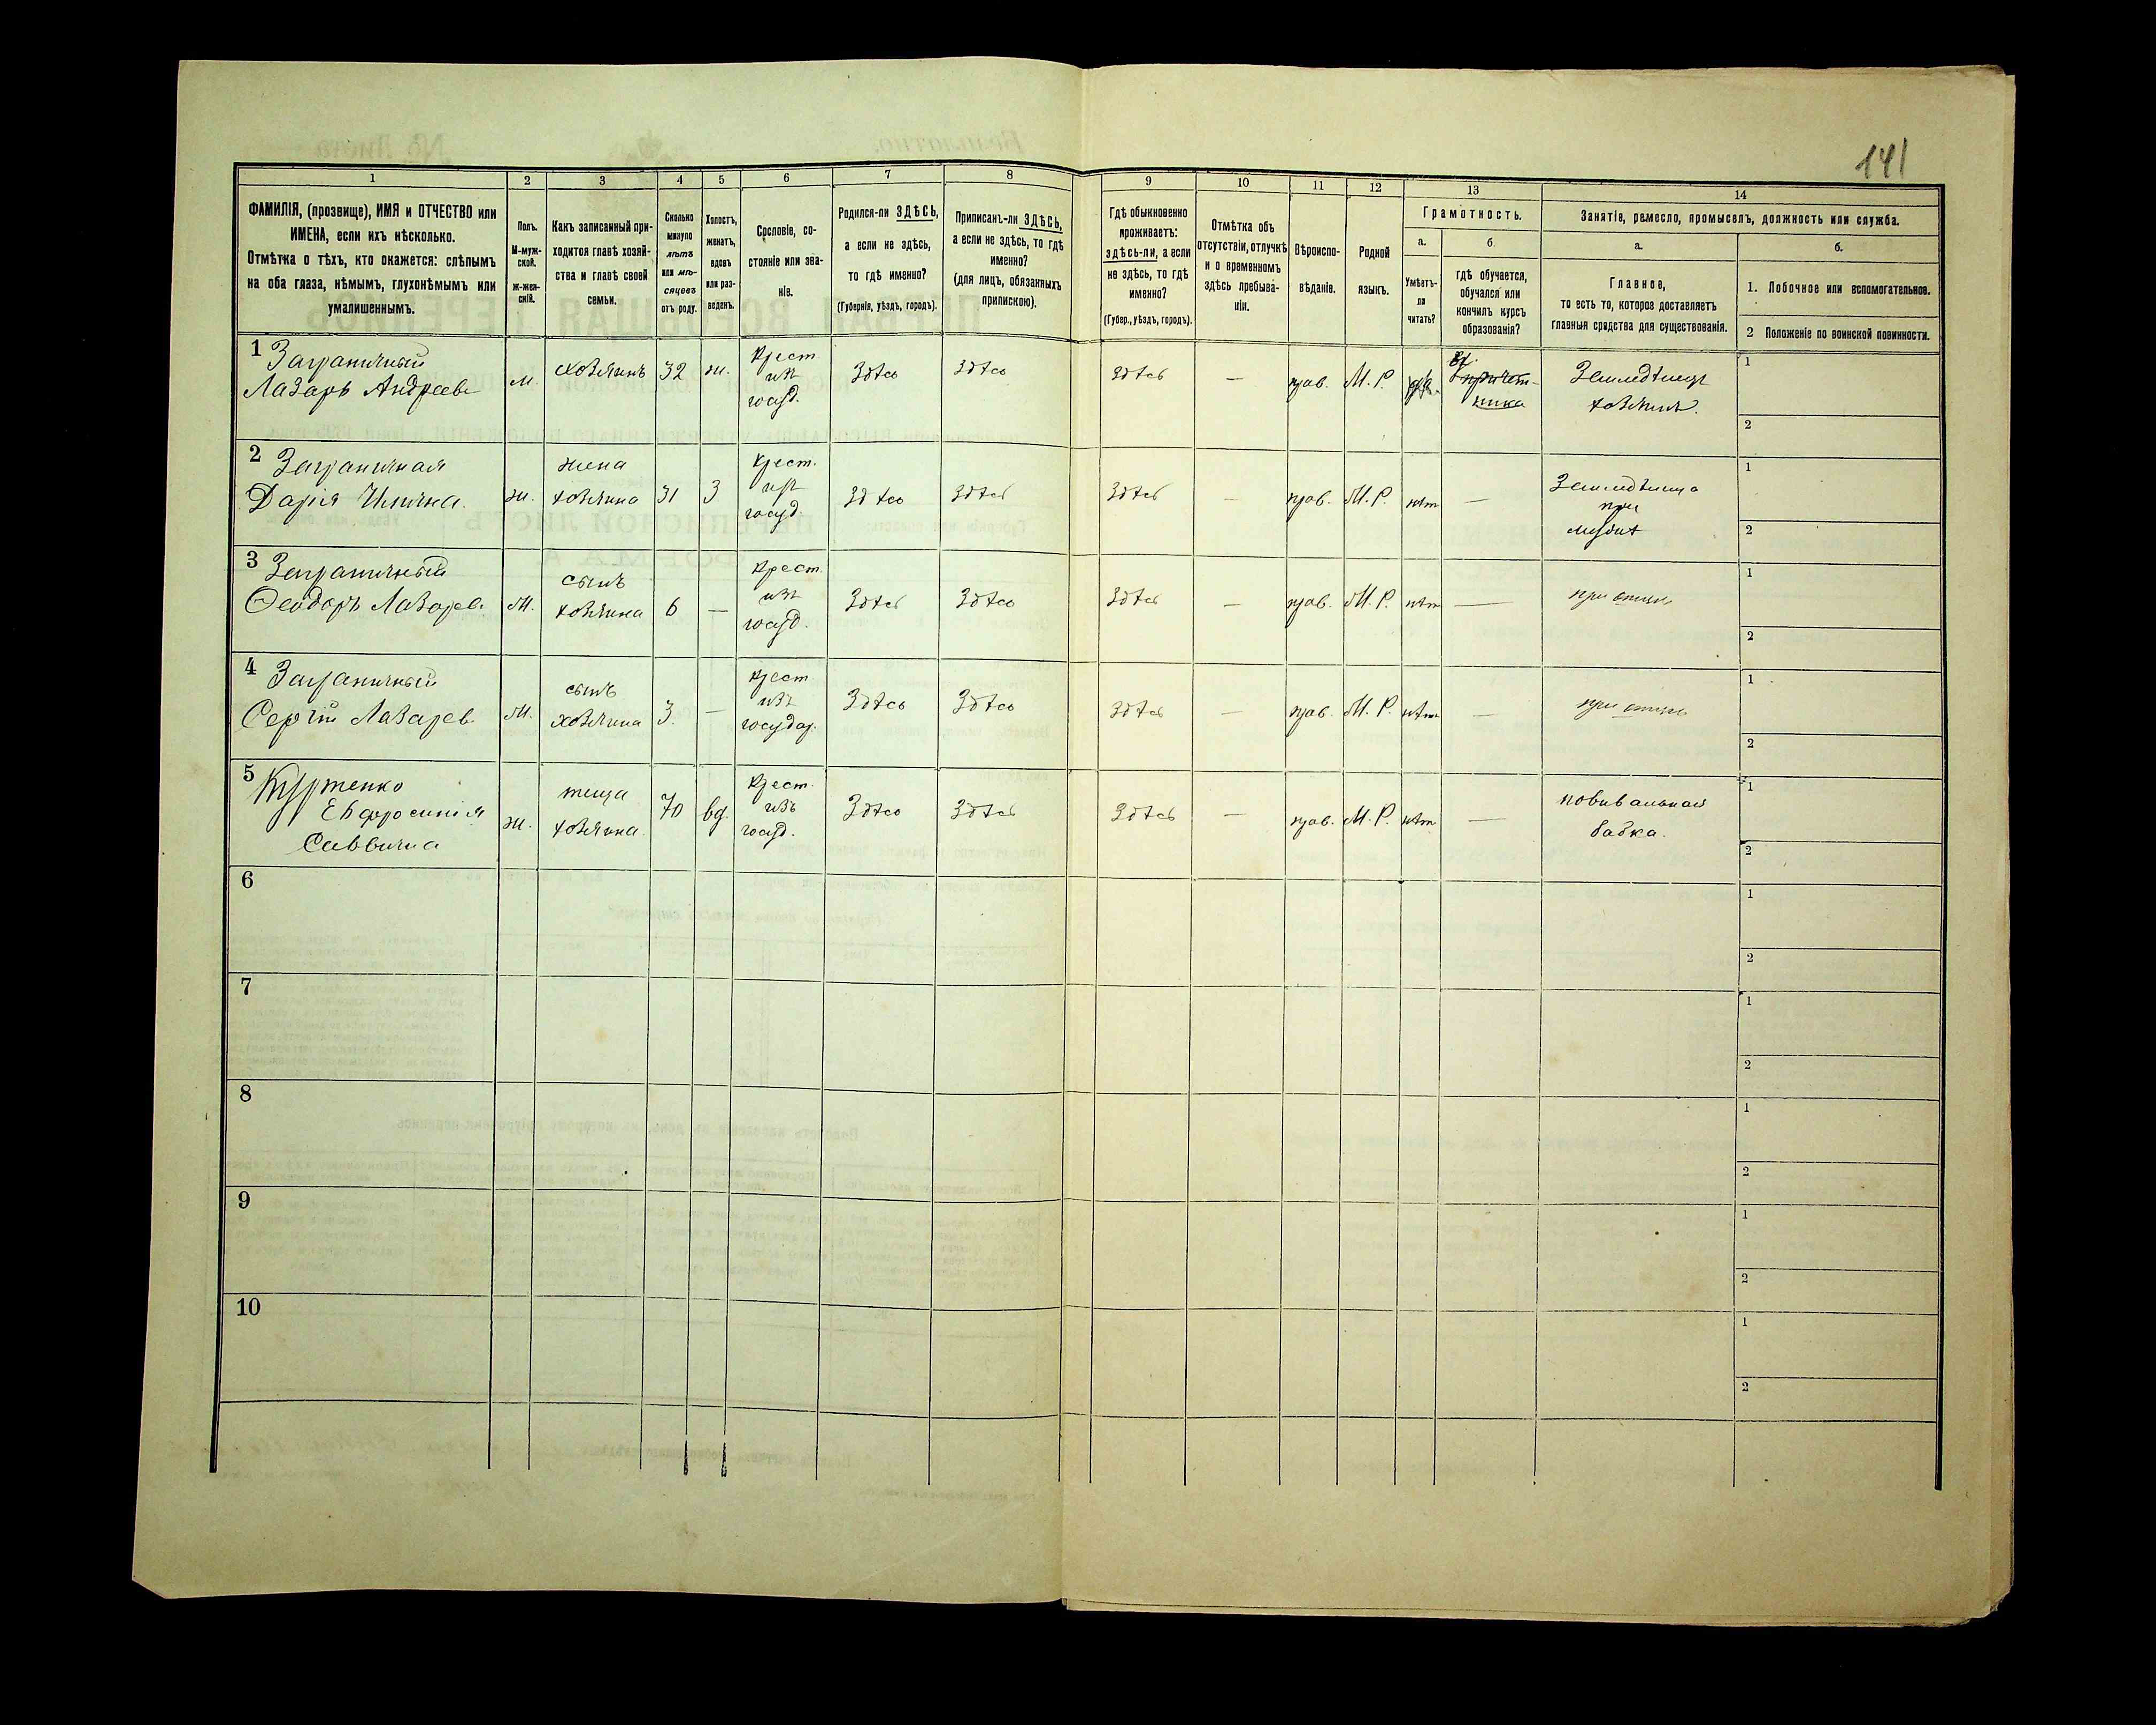 141
1 2 3 4 5 6 7 8 9 10 11 12 13 14
ФАМИЛІЯ, (прозвище), ИМЯ и ОТЧЕСТВО или
ИМЕНА, если ихъ нѣсколько.
Отмѣтка о тѣхъ, кто окажется: слѣпымъ
на оба глаза, нѣмымъ, глухонѣмымъ или
умалишеннымъ.
Полъ.
М-муж-
ской.
ж-жен-
скій.
Какъ записанный при-
ходится главѣ хозяй-
ства и главѣ своей
семьи.
Сколько
минуло
лѣтъ
или мѣ-
сяцевъ
отъ роду.
Холостъ,
женатъ,
вдовъ
или раз-
веденъ.
Сословіе, со-
стояніе или зва-
ніе.
Родился-ли ЗДѢСЬ,
а если не здѣсь,
то гдѣ именно?
(Губернія, уѣздъ, городъ).
Приписанъ-ли ЗДѢСЬ,
а если не здѣсь, то гдѣ
именно?
(для лицъ, обязанныхъ
припискою).
Гдѣ обыкновенно
проживаетъ:
здѣсь-ли, а если
не здѣсь, то гдѣ
именно?
(Губер., уѣздъ, городъ).
Отмѣтка объ
отсутствіи, отлучкѣ
и о временномъ
здѣсь пребыва-
ніи.
Вѣроиспо-
вѣданіе.
Родной
языкъ.
Грамотность.
а.
Умѣетъ-
ли
читать?
б.
гдѣ обучается,
обучался или
кончилъ курсъ
образованія?
Занятіе, ремесло, промыселъ, должность или служба.
а.
Главное,
то есть то, которое доставляетъ
главныя средства для существованія.
б.
1. Побочное или вспомогательное.
2 Положеніе по воинской повинности.
1 Заграничный
Лазарь Андреевъ
м.
хозяинъ
32
ж.
Крест
изъ
госуд.
Здѣсь
Здѣсь
Здѣсь
—
прав.
М. Р.
да.
У причет-
ника
Земледѣлецъ
хозяинъ.
1
2
2 Заграничная
Дарія Ильична.
ж.
жена
хозяина
31
З
Крест.
изъ
госуд.
Здѣсь
Здѣсь
Здѣсь
—
прав.
М. Р.
нѣт
—
при
1
2
3 Заграничный
Ѳеодоръ Лазарев.
М.
сынъ
хозяина
6
—
Крест.
изъ
госуд.
Здѣсь
Здѣсь
Здѣсь
—
прав.
М. Р.
нѣт
—
при отцѣ
1
2
4 Заграничный
Сергій Лазарев.
М.
сынъ
хозяина
3.
—
Крест
изъ
государ.
Здѣсь
Здѣсь
Здѣсь
—
прав.
М. Р.
нѣт
—
при отцѣ
1
2
5 Куртенко
Евфросинія
Саввична
ж.
теща
хозяина.
70
вд
Крест.
изъ
госуд.
Здѣсь
Здѣсь
Здѣсь
—
прав.
М. Р.
нѣт
—
повивальная
бабка.
1
2
6
1
2
7
1
2
8
1
2
9
1
2
10
1
2